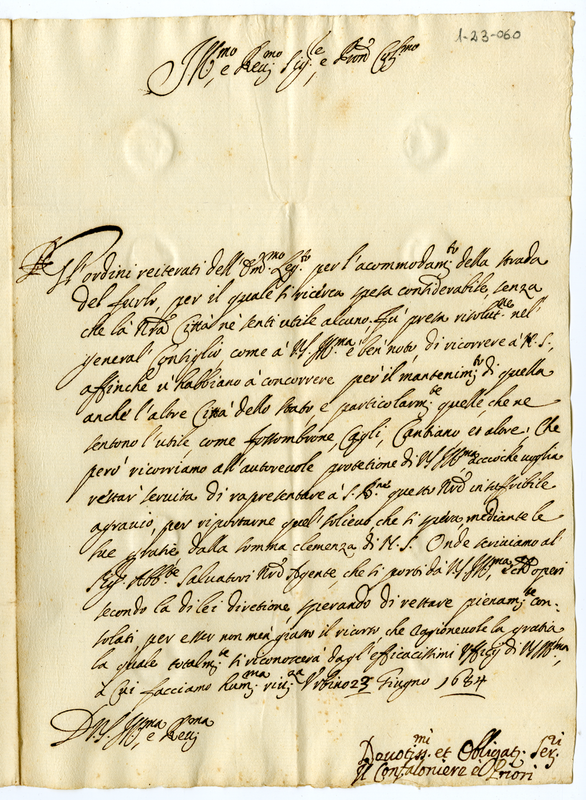 1-23-060
Ill.mo, e Rev.mo Sig.re, e Pron Col.mo
Per l'ordini reiterati dell'Em.mo Leg.to per l'acommodam.to della strada
del furlo, per il quale si ricerca spesa considerabile, senza
che la Nrã Città nè senti utile alcuno, fù presa risolut.ne nel'
general' Consiglio come à VS Ill.ma è ben' noto, di ricorrere à N.S.,
affinche vi habbiano à concorrere per il mantenim.to di quella
anche l'altre Città dello stato e particolarm.te quelle, che ne
sentono l'utile, come fossombrone, Cagli, Cantiano et altre: Che
però ricorriamo all'autorevole protetione di VS Ill.ma acciò che voglia
restar servita di rapresentare à S. B.ne questo Nrõ insuffribile
agravio, per riportarne quel' solievo che si spera, mediante le
sue gratie dalla somma clemenza di N.S. Onde scriviamo al'
Sig.r Abb.te Salvatori Nrõ Agente che si porti da VS Ill.ma, ed operi
secondo la di lei diretione, sperando di restare pienam.te con-
solati per esser non men' giusto il ricorso, che ragionevole la gratia
la quale totalm.te si riconoscerà dagl'efficacissimi Uffitij di VS Ill.ma,
à cui facciamo hum.ma riv.za Urbino 23 Giugno 1684
D VS Ill.ma, e Rev.ma
Devotiss.mi et Obligat.mi Ser.ri
Il Confaloniere e Priori